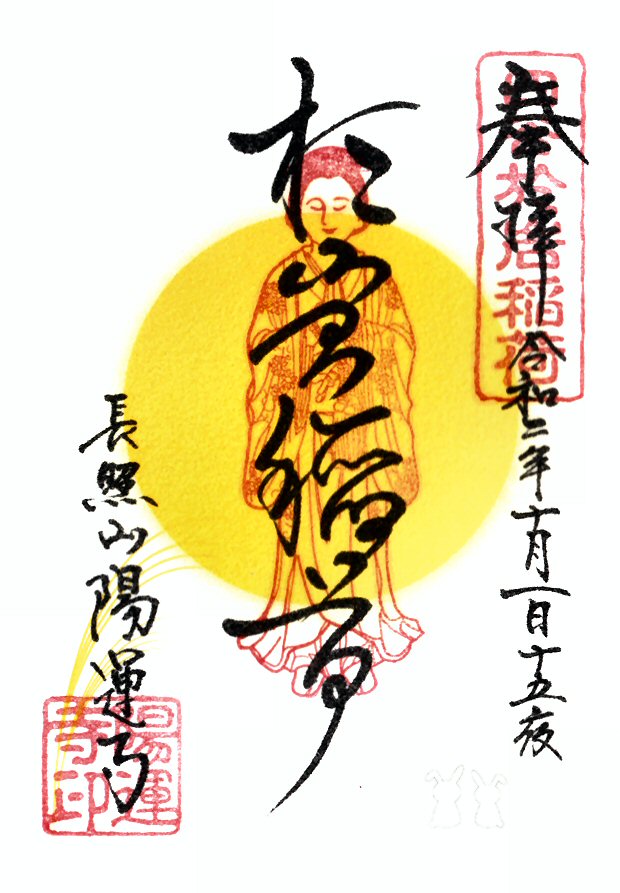 奉拝 令和二年十月一日十五夜
四谷於岩稲荷
於岩稲荷
長照山陽運寺
陽運寺印